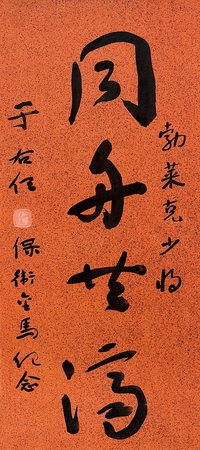 勃莱克少将
同舟共濟
于右任
保衛金馬紀念